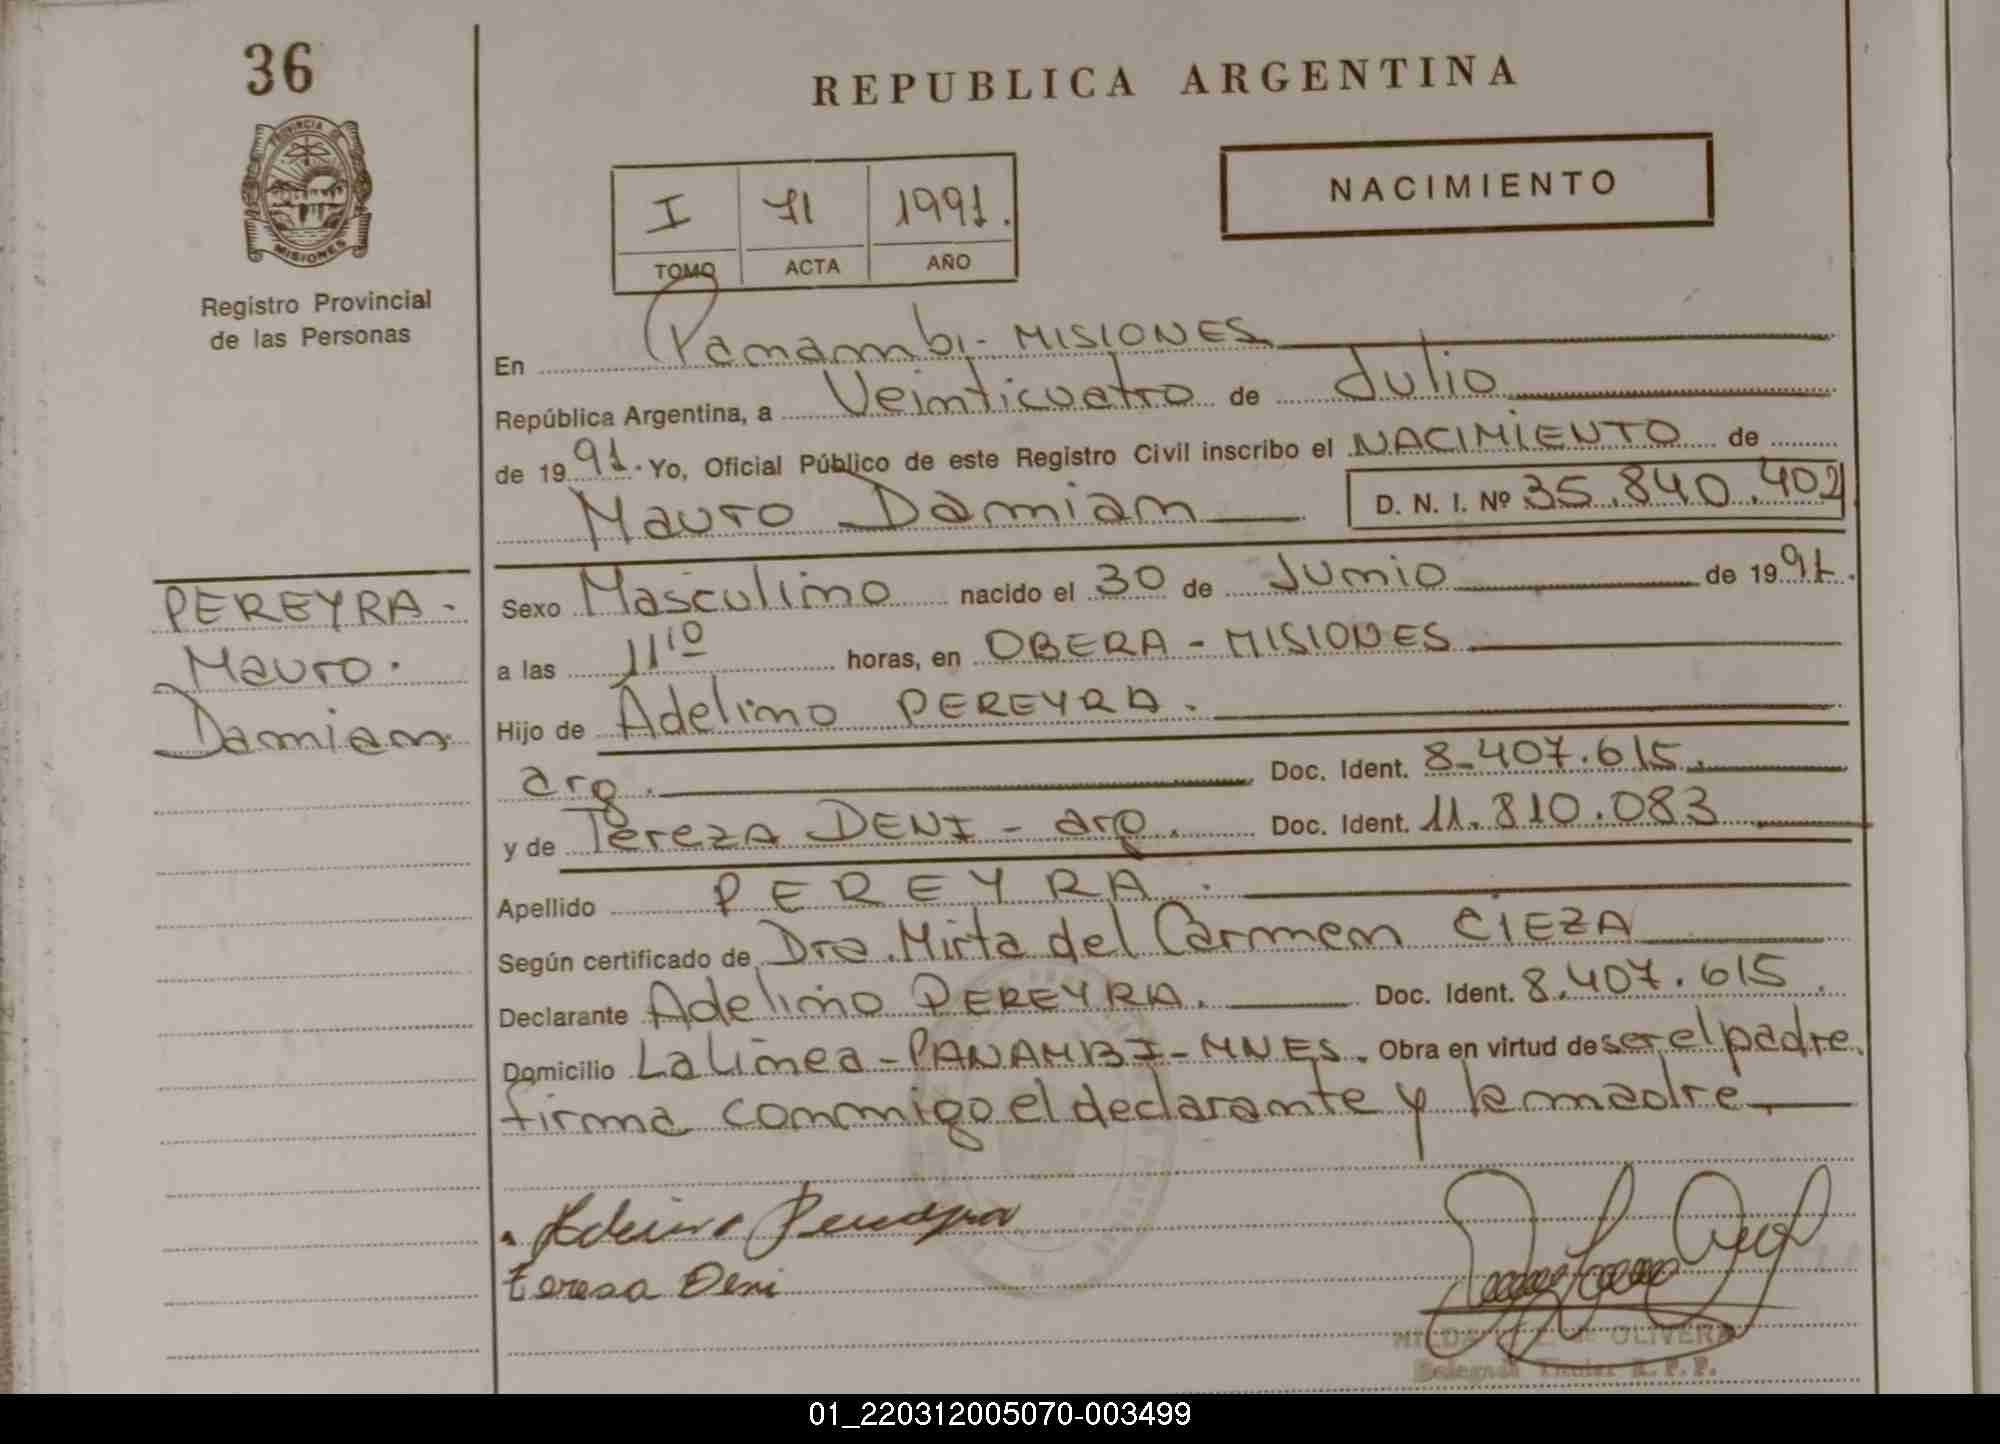 36
REPUBLICA ARGENTINA
NACIMIENTO
PROVINCIA DE
MISIONES
Registro Provincial
de las Personas
I 71 1991.
TOMO ACTA AÑO
En Panambi - MISIONES
República Argentina, a Veinticuatro de Julio
de 1991. Yo, Oficial Público de este Registro Civil inscribo el NACIMIENTO de
Mauro Damian D. N. I. Nº 35.840.402
PEREYRA -
Mauro.
Damian
Sexo Masculino nacido el 30 de Junio de 1991.
a las 11 10 horas, en OBERA - MISIONES
Hijo de Adelino PEREYRA.
arg. Doc. Ident. 8.407.615.
y de Tereza DENI - arg. Doc. Ident. 11.810.083
Apellido PEREYRA.
Según certificado de Dra. Mirta del Carmen CIEZA
Declarante Adelino PEREYRA. Doc. Ident. 8.407.615.
Domicilio La Linea - PANAMBI - MNES. Obra en virtud de ser el padre,
firma conmigo el declarante y la madre.
Adelino Pereyra
teresa Deni
OLIVERA
Delegada Titular R.P.P.
01_220312005070-003499